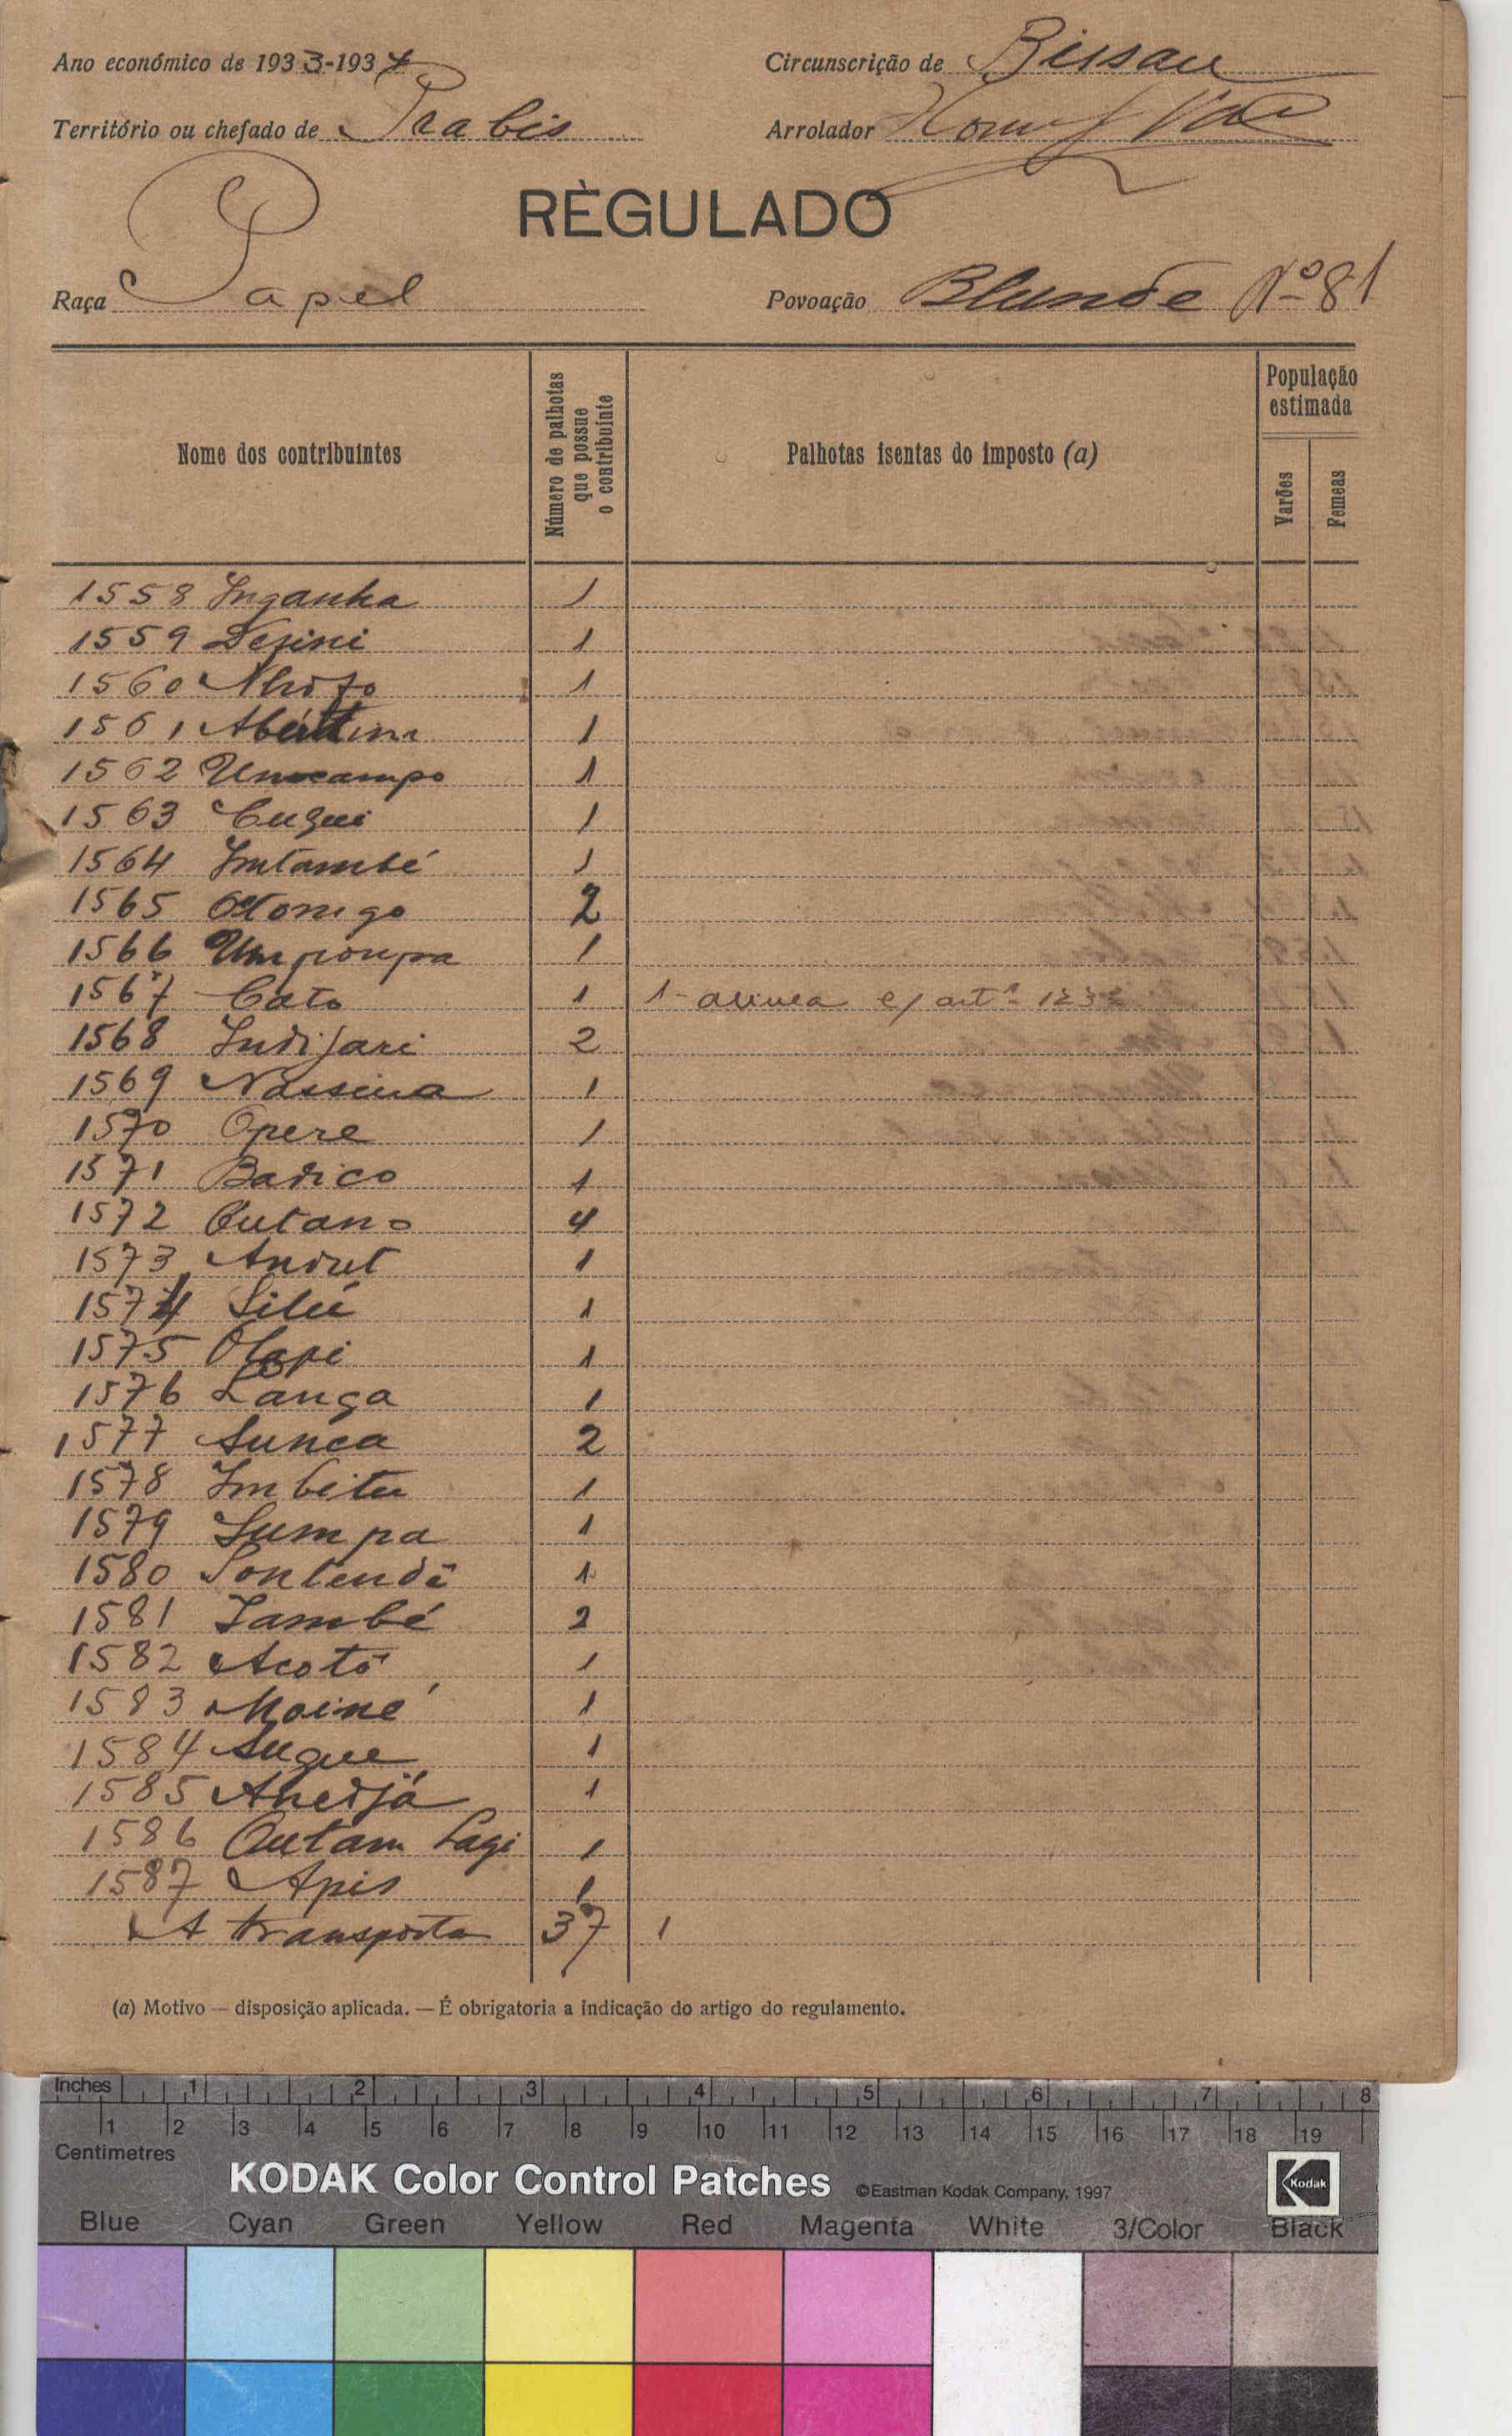 Ano económico de 1933-1934
Circunscrição de Bissau
Território ou chefado de Prabis
Arrolador
RÈGULADO
Raça Papel
Povoação Blunde Nº 81
Nome dos contribuintes
Número de palhotas que possue o contribuinte
Palhotas isentas do imposto (a)
População estimada
Varões
Femeas
1558 Inganha 1
1559 1
1560 1
1561 1
1562 1
1563 1
1564 Intambé 1
1565 2
1566 1
1567 Cato 1 1 - alinea c/ artº
1568 Indijari 2
1569 Nassina 1
1570 Opere 1
1571 Badico 1
1572 Cutano 4
1573 Andut 1
1574 Silú 1
1575 1
1576 Langa 1
1577 Sunca 2
1578 1
1579 1
1580 1
1581 També 2
1582 Acotó 1
1583 Moiné 1
1584 Sugue 1
1585 1
1586 1
1587 Apis 1
A transporta 37 1
(a) Motivo — disposição aplicada. — É obrigatoria a indicação do artigo do regulamento.
Inches 1 2 3 4 5 6 7 8
1 2 3 4 5 6 7 8 9 10 11 12 13 14 15 16 17 18 19
Centimetres
KODAK Color Control Patches ©Eastman Kodak Company, 1997 Kodak
Blue Cyan Green Yellow Red Magenta White 3/Color Black